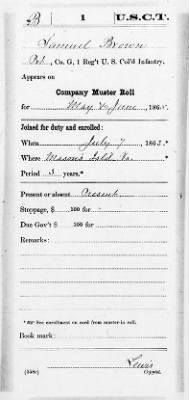 B | 1 | U.S.C.T.
Samuel Brown
Pvt, Co. G, 1 Reg't U. S. Col'd Infantry.
Appears on
Company Muster Roll
for May & June, 1865.
Joined for duty and enrolled:
When July 7, 1863.*
Where Mason's Isld Va.
Period 3 years.*
Present or absent Present
Stoppage, $ 100 for
Due Gov't $ 100 for
Remarks:
* See enrollment on card from muster-in roll.
Book mark:
Lewis
(358c) Copyist.